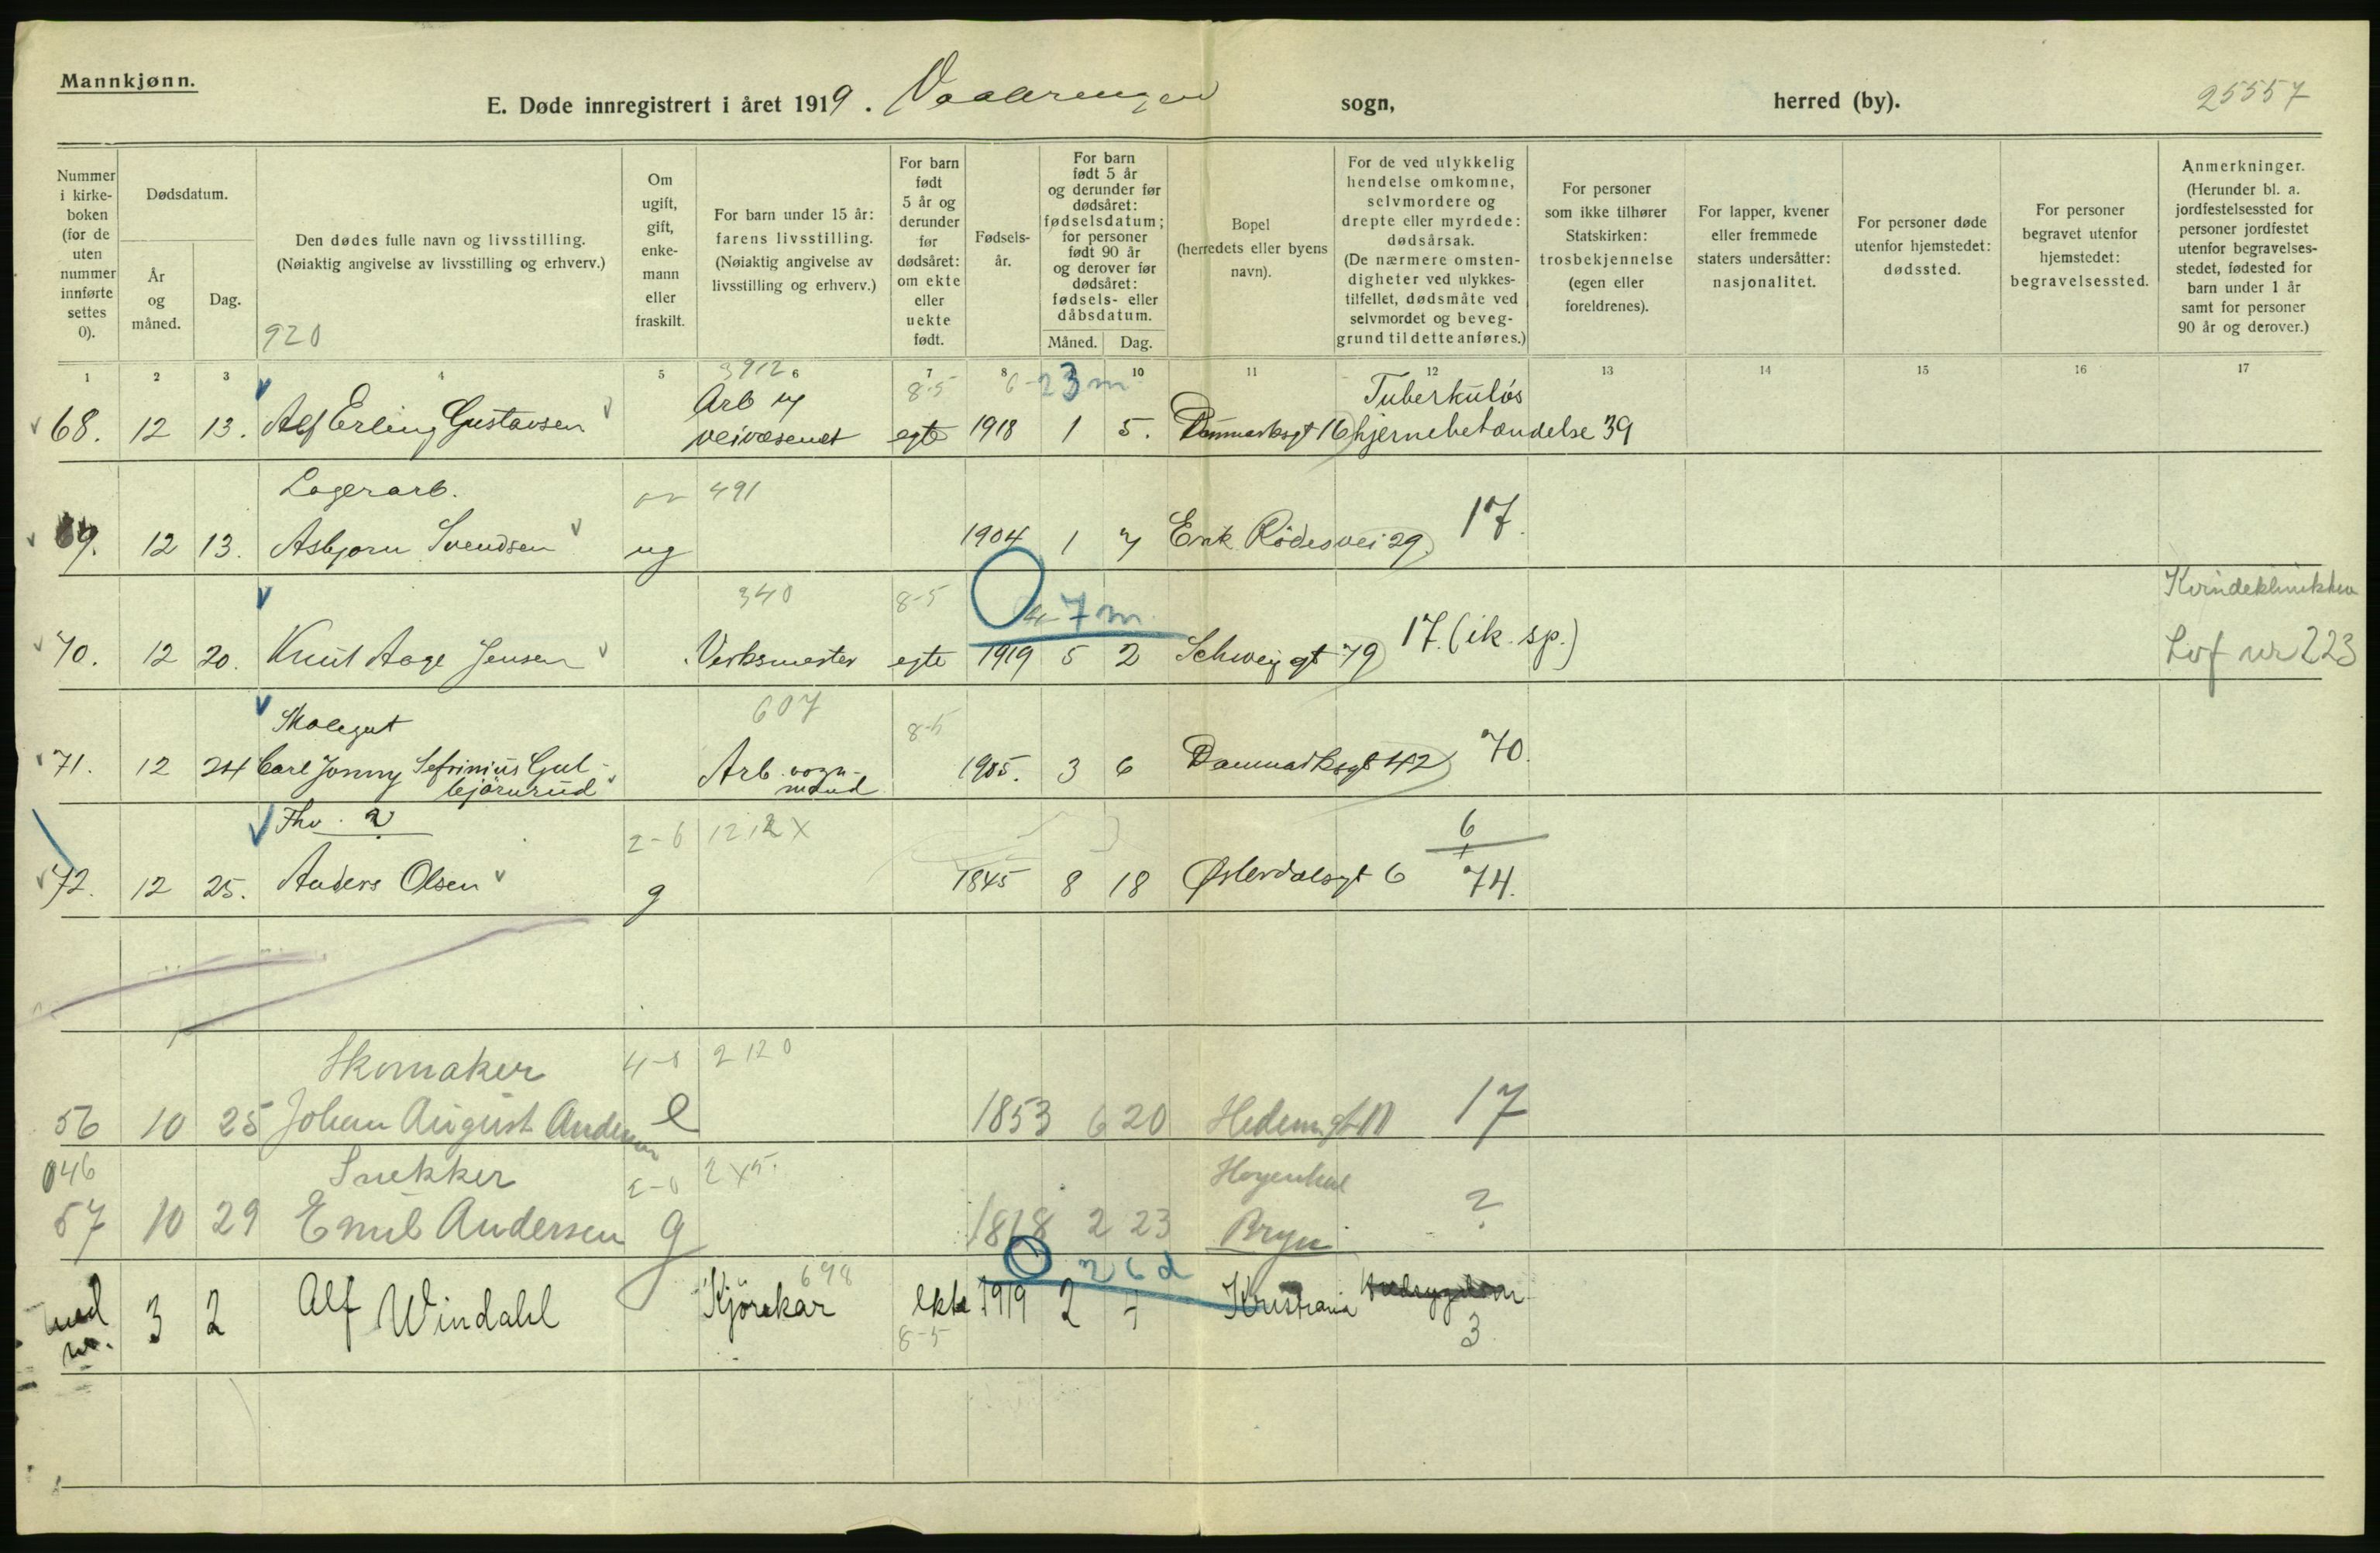 Mannkjønn.
E. Døde innregistrert i året 1919. Vaalerengen sogn, herred (by). 25557
Nummer i kirkeboken (for de uten nummer innførte settes 0).
Dødsdatum.
År og måned.
Dag.
Den dødes fulle navn og livsstilling.
(Nøiaktig angivelse av livsstilling og erhverv.)
920
Om ugift, gift, enkemann eller fraskilt.
For barn under 15 år: farens livsstilling. (Nøiaktig angivelse av livsstilling og erhverv.)
For barn født 5 år og derunder før dødsåret: om ekte eller uekte født.
Fødselsår.
For barn født 5 år og derunder før dødsåret: fødselsdatum; for personer født 90 år og derover før dødsåret: fødsels- eller dåbsdatum.
Måned. Dag.
Bopel (herredets eller byens navn).
For de ved ulykkelig hendelse omkomne, selvmordere og drepte eller myrdede: dødsårsak. (De nærmere omstendigheter ved ulykkestilfellet, dødsmåte ved selvmordet og beveggrund til dette anføres.)
For personer som ikke tilhører Statskirken: trosbekjennelse (egen eller foreldrenes).
For lapper, kvener eller fremmede staters undersåtter: nasjonalitet.
For personer døde utenfor hjemstedet: dødssted.
For personer begravet utenfor hjemstedet: begravelsessted.
Anmerkninger. (Herunder bl. a. jordfestelsessted for personer jordfestet utenfor begravelsesstedet, fødested for barn under 1 år samt for personer 90 år og derover.)
1 2 3 4 5 6 7 8 10 11 12 13 14 15 16 17
3912 8-5 23 m Tuberkuløs
68. 12 13. Alf Erling Gustavsen Arb v veivæsenet egte 1918 1 5. Danmarksgt 16 hjernebetændelse 39
Lagerarb. 491
69. 12 13. Asbjorn Svendsen ug 1904 1 7 Erik Rødesvei 29 17.
340 8-5 7 m Kvindeklinikken
70. 12 20. Knut Aage Jensen Verksmester egte 1919 5 2 Schweigt 79 17. (ik. sp.) Lvf nr 223
Skolegut 607 8-5
71. 12 24 Carl Jonny Sefrinius Gulbjørnrud Arb. vognmand 1905. 3 6 Danmarksgt 42 70.
Fhv. ? 2-6 1212 X 6
72. 12 25. Anders Olsen g 1845 8 18 Østerdalsgt 6 74.
Skomaker 4-0 2120
56 10 25 Johan August Andersen e 1853 6 20 Hedem.gt 11 17
046 Snekker 2-0 Høyenhal
57 10 29 Emil Andersen g 1868 2 23 Bryn ?
698 26 d
uad nr. 3 2 Alf Windahl Kjørekar ekte 1919 2 4 Kristiania
8-5 3